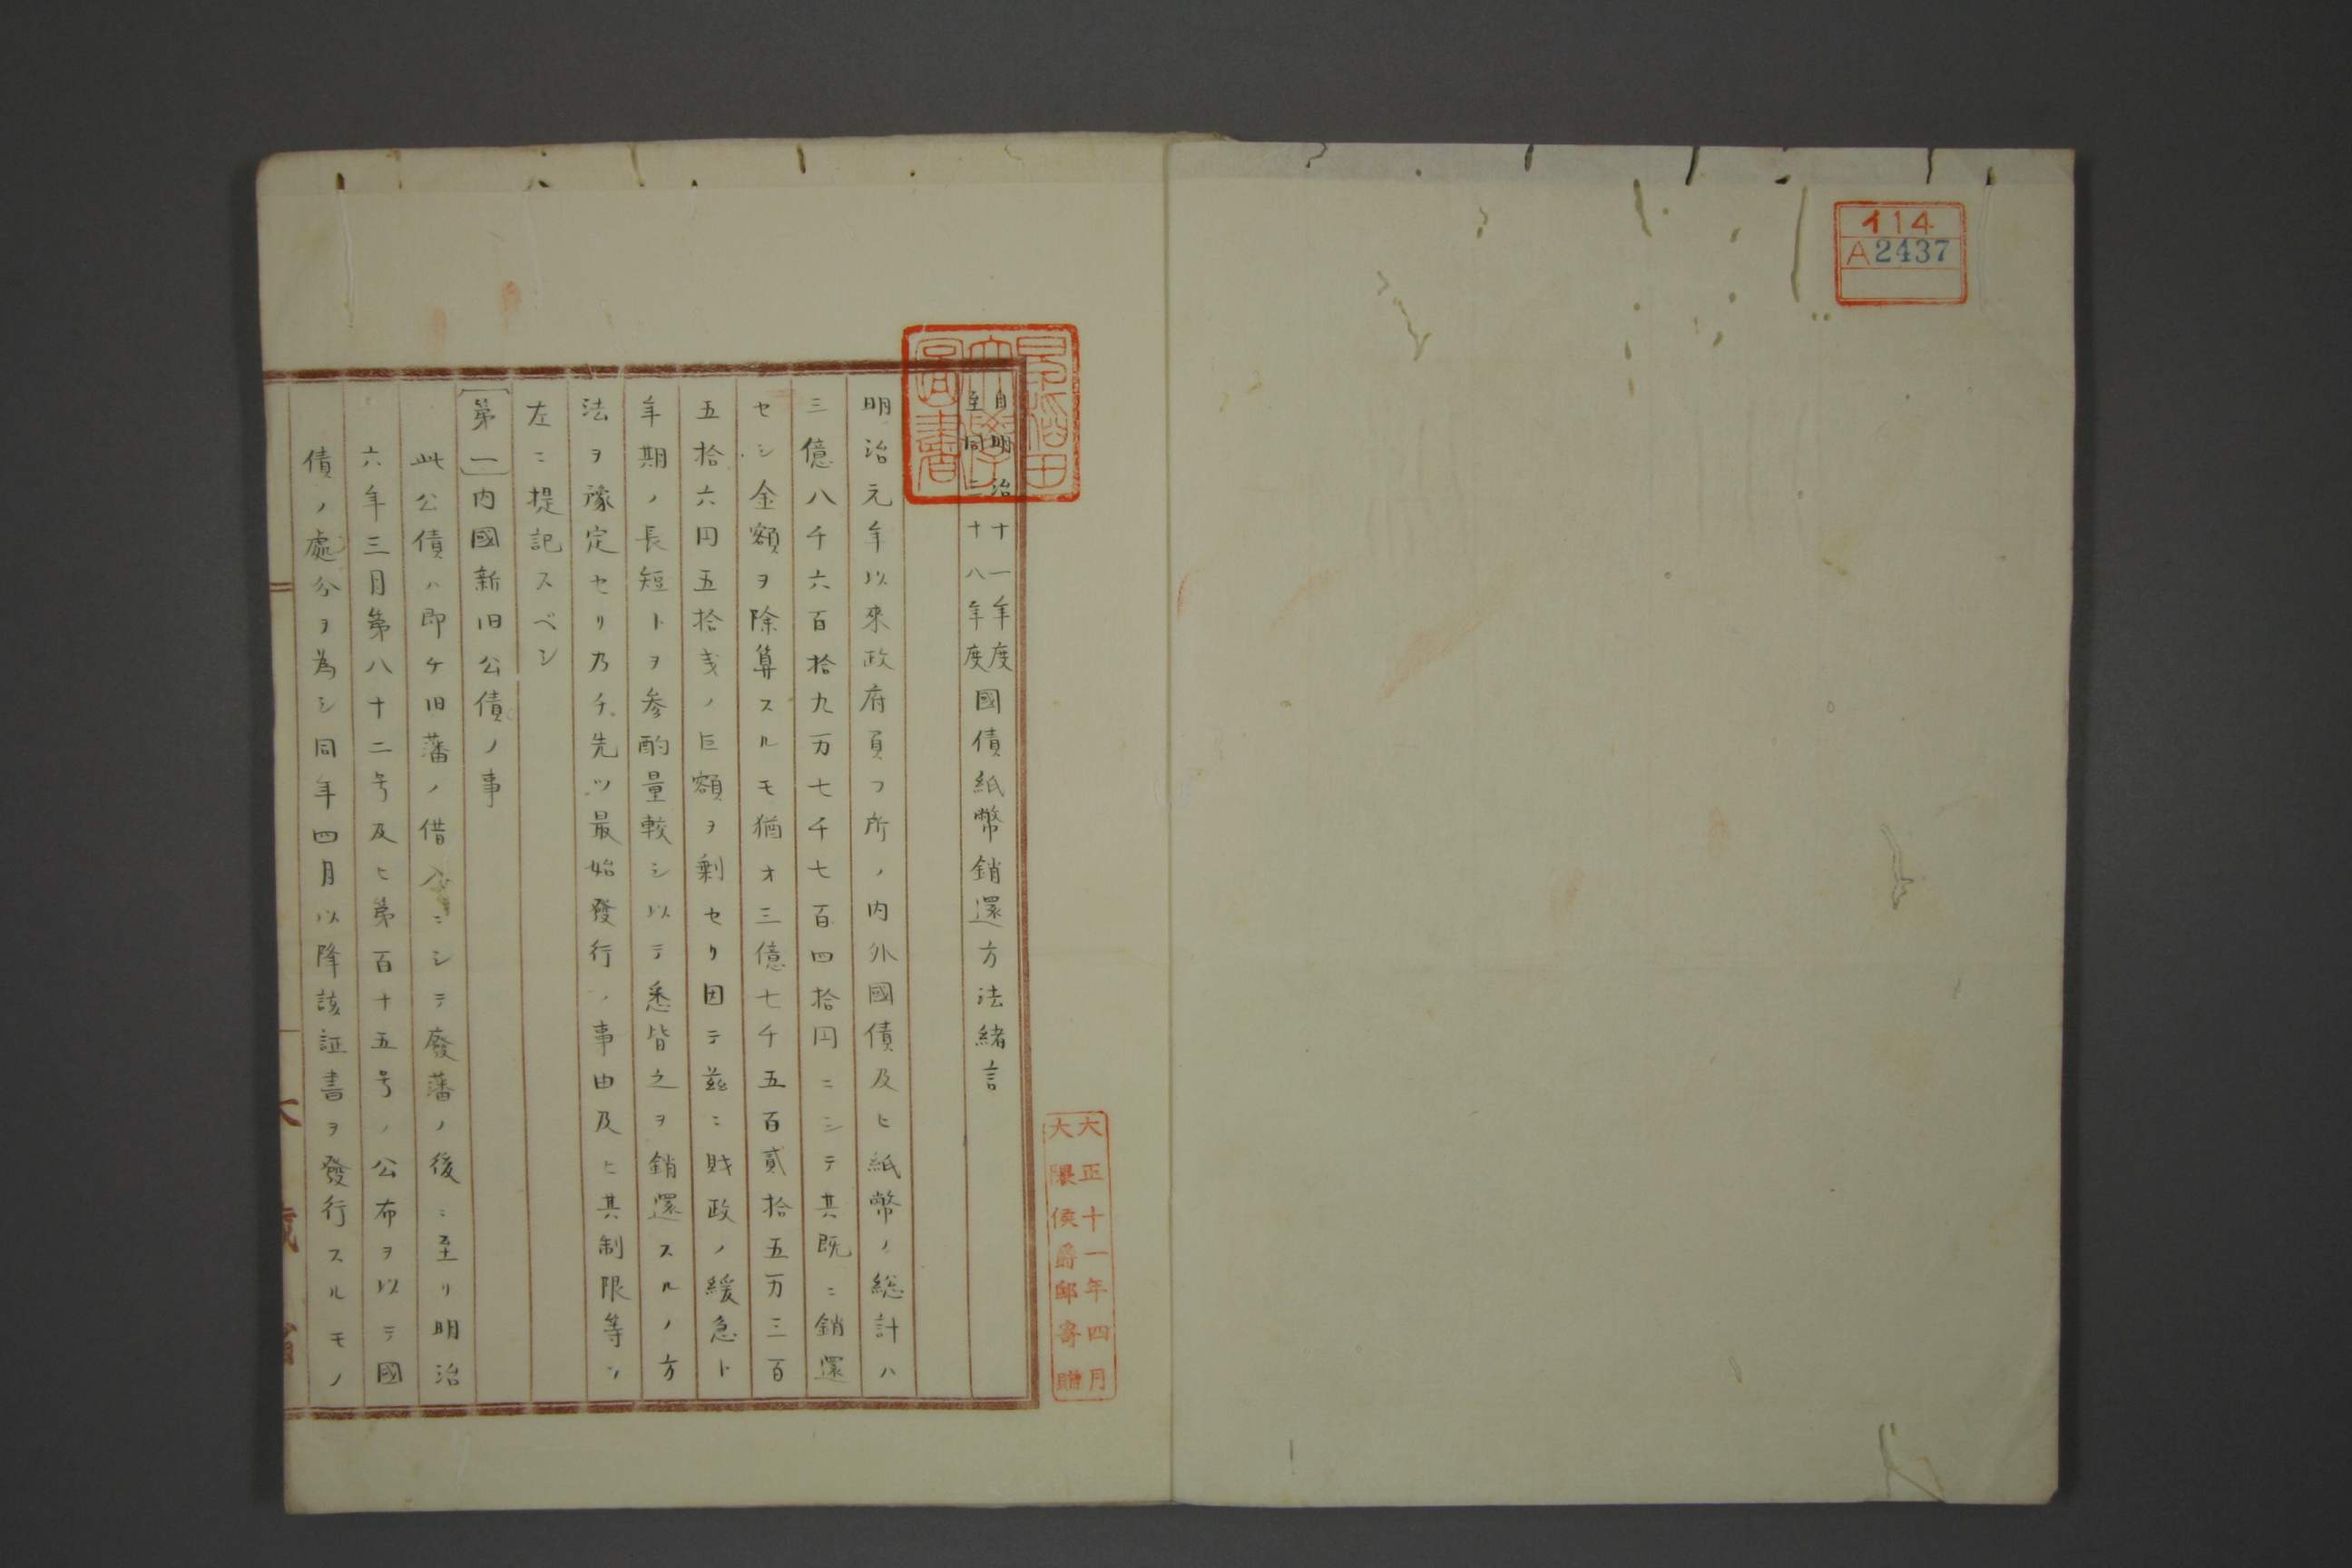 イ14
A2437
早稲田
大學
圖書
大正十一年四月
大隈侯爵邸寄贈
自明治十一年度
至同二十八年度
國債紙幣銷還方法緒言
明治元年以來政府負フ所ノ内外國債及ヒ紙幣ノ総計ハ
三億八千六百拾九万七千七百四拾円ニシテ其既ニ銷還
セシ金額ヲ除算スルモ猶オ三億七千五百貳拾五万三百
五拾六円五拾戋ノ巨額ヲ剰セリ因テ茲ニ財政ノ緩急ト
年期ノ長短トヲ参酌量較シ以テ悉皆之ヲ銷還スルノ方
法ヲ豫定セリ乃チ先ツ最始發行ノ事由及ヒ其制限等ツ
左ニ提記スベシ
〔第一〕内國新旧公債ノ事
此公債ハ即ケ旧藩ノ借入ニシテ廢藩ノ後ニ至リ明治
六年三月第八十二号及ヒ第百十五号ノ公布ヲ以テ國
債ノ處分ヲ為シ同年四月以降該証書ヲ發行スルモノ
大藏省